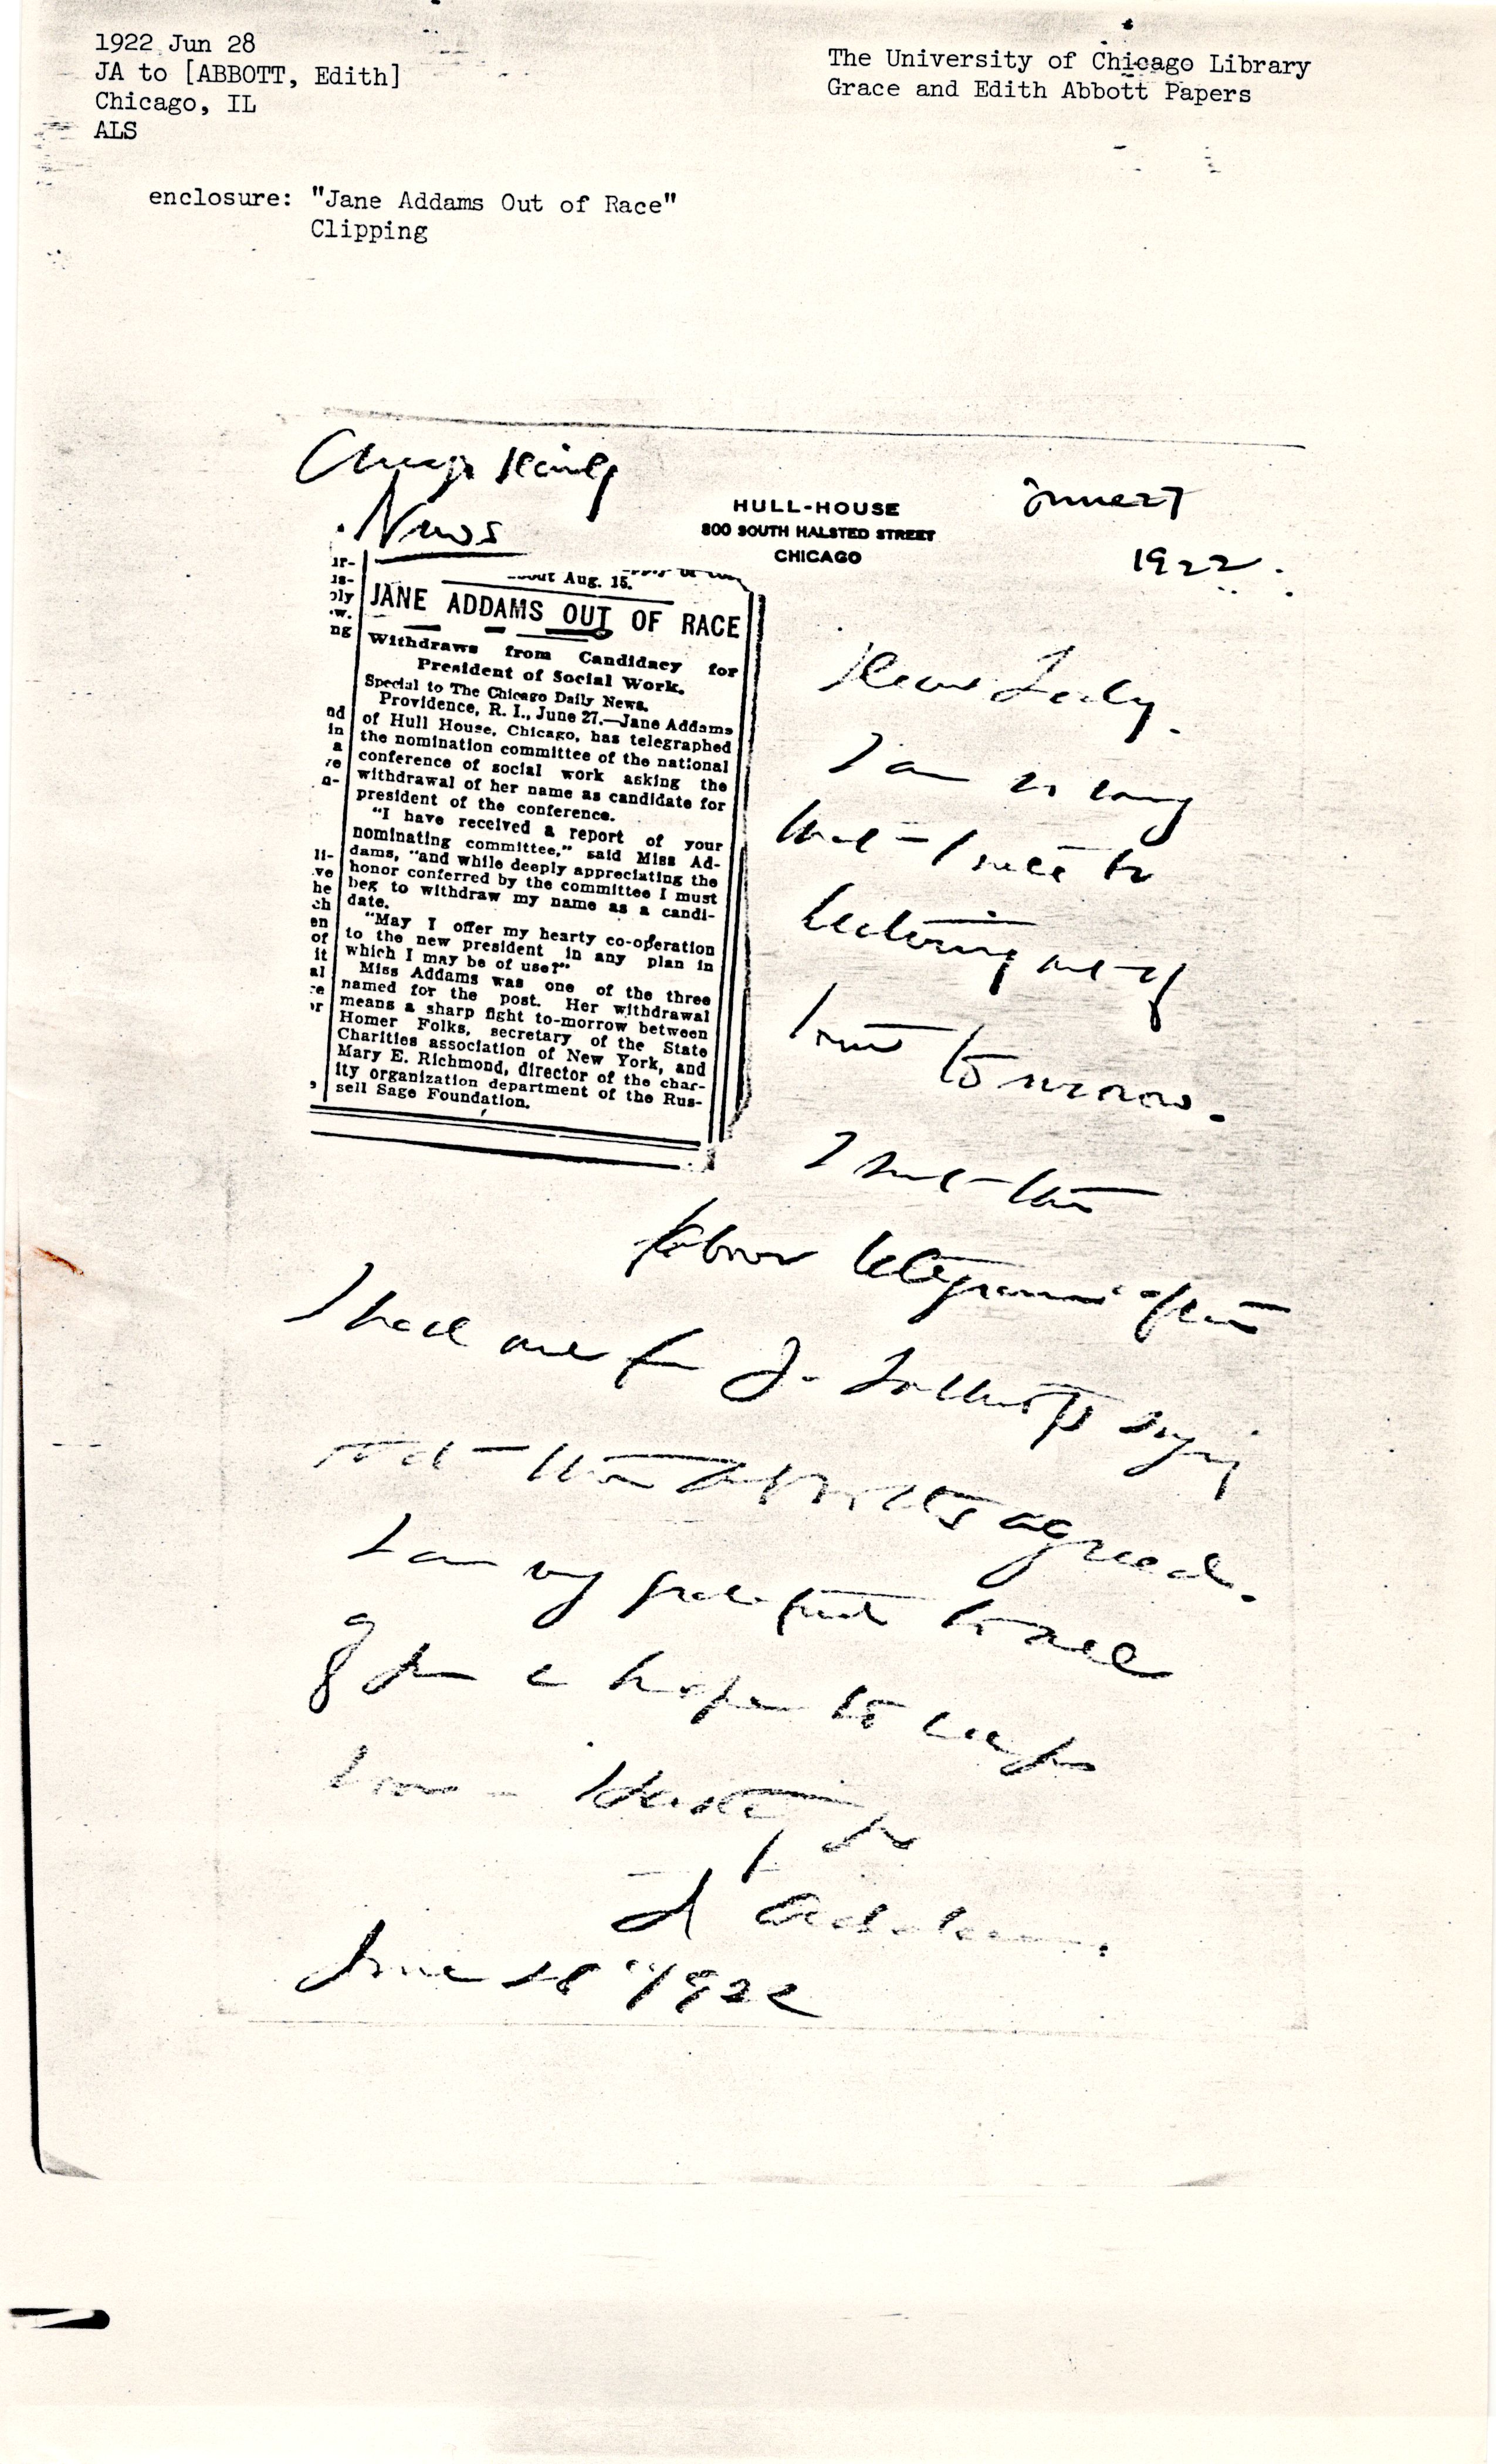 1922 Jun 28
JA to [ABBOTT, Edith]
Chicago, IL
ALS
The University of Chicago Library
Grace and Edith Abbott Papers
enclosure: "Jane Addams Out of Race"
Clipping
Chicago Daily
News
HULL-HOUSE
800 SOUTH HALSTED STREET
CHICAGO
June 27
1922.
ir-
is-
ply
w.
ng
out Aug. 15.
JANE ADDAMS OUT OF RACE
Withdraws from Candidacy for
President of Social Work.
Special to The Chicago Daily News.
Providence, R. I., June 27.—Jane Addams
of Hull House, Chicago, has telegraphed
the nomination committee of the national
conference of social work asking the
withdrawal of her name as candidate for
president of the conference.
"I have received a report of your
nominating committee," said Miss Ad-
dams, "and while deeply appreciating the
honor conferred by the committee I must
beg to withdraw my name as a candi-
date.
"May I offer my hearty co-operation
to the new president in any plan in
which I may be of use?"
Miss Addams was one of the three
named for the post. Her withdrawal
means a sharp fight to-morrow between
Homer Folks, secretary of the State
Charities association of New York, and
Mary E. Richmond, director of the char-
ity organization department of the Rus-
sell Sage Foundation.
ad
in
a
re
a-
ll-
ve
he
ch
en
of
it
al
re
or
,
Dear Lady.
I am so sorry
that I
to
tomorrow.
I sent the
above telegram after
I had one from J. Tolbert saying
that the Abbotts agreed.
I am very grateful to all
of you & hope to
Hastily yrs
J Addams.
June 28 "1922